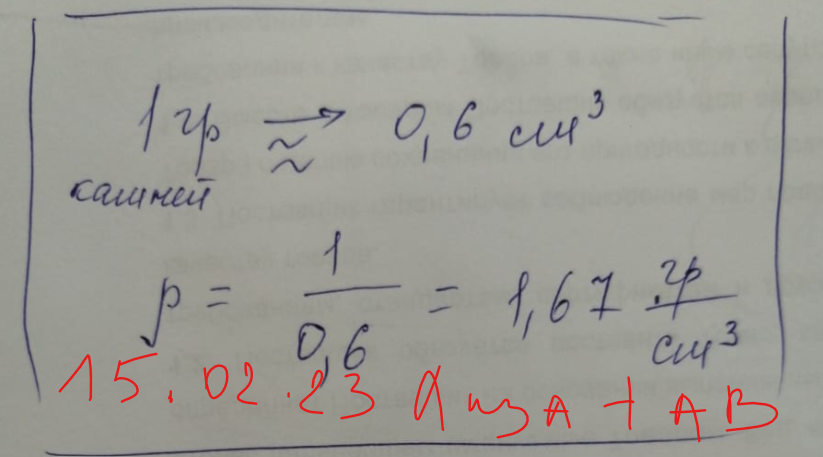 1 гр ⟶ 0,6 см³
≈
камней
ρ = 1/0,6 = 1,67 гр/см³
15.02.23 Лиза + АВ